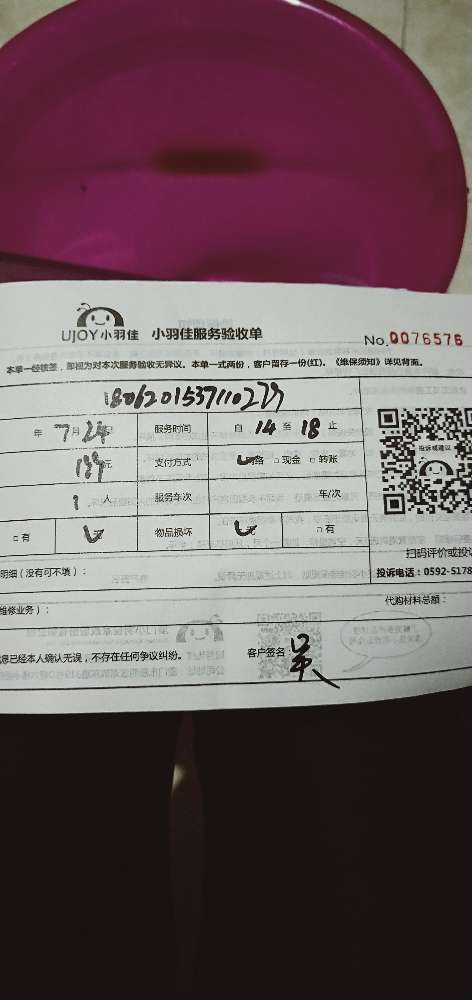 UJOY小羽佳 小羽佳服务验收单
No.0076576
本单一经核签，即视为对本次服务验收无异议。本单一式两份，客户留存一份(红)。《维保须知》详见背面。
年 7月24日 服务时间 自 14 至 18 止
元 支付方式 网络 □ 现金 □ 转账
投诉或建议
1 人 服务车次 车/次
□ 有 物品损坏 无 □ 有
扫码评价或投诉
明细（没有可不填）：
投诉电话：0592-5178
维修业务）：
代购材料总额：
息已经本人确认无误，不存在任何争议纠纷。 客户签名：